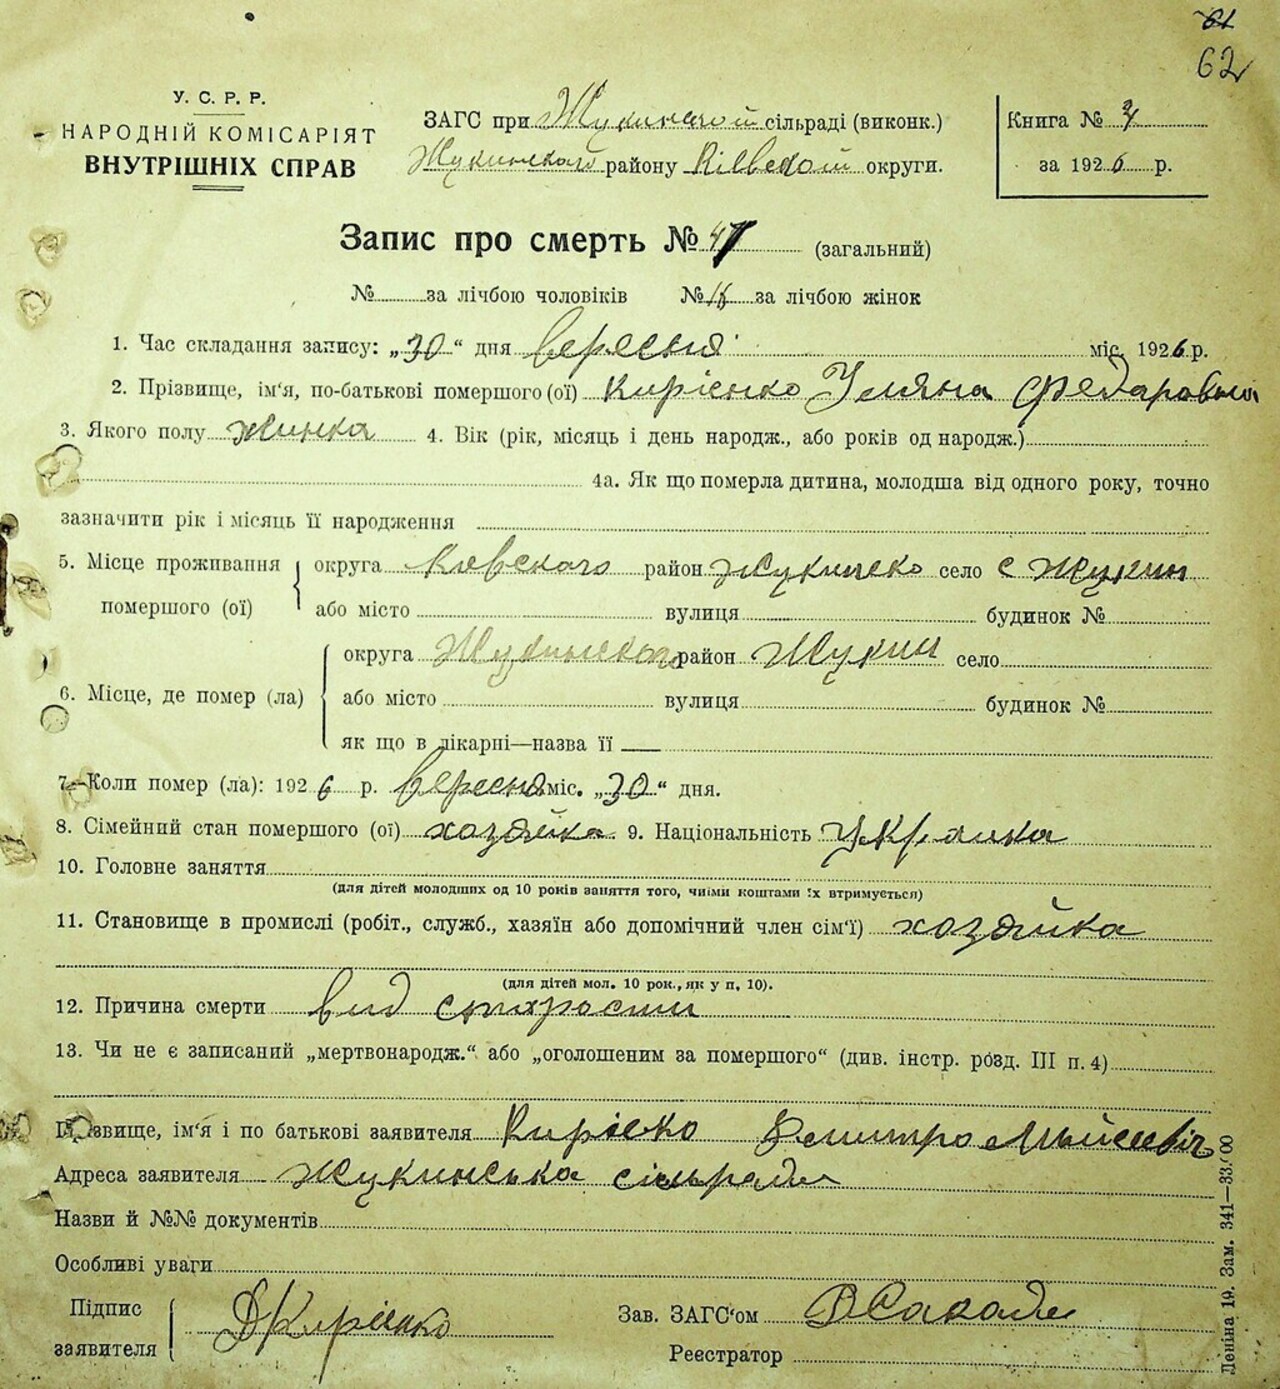 61
62
У. С. Р. Р.
НАРОДНІЙ КОМІСАРІЯТ
ВНУТРІШНІХ СПРАВ
ЗАГС при Жукинской сільраді (виконк.)
Жукинского району Киевской округи.
Книга №
за 1926 р.
Запис про смерть № 47 (загальний)
№ за лічбою чоловіків № за лічбою жінок
1. Час складання запису: „30“ дня вересня міс. 1926 р.
2. Прізвище, ім‘я, по-батькові помершого (ої) Кирієнко Уляна Федаровна
3. Якого полу жинка 4. Вік (рік, місяць і день народж., або років од народж.)
4а. Як що померла дитина, молодша від одного року, точно
зазначити рік і місяць її народження
5. Місце проживання помершого (ої) округа Киевского район Жукинско село с Жукин
або місто вулиця будинок №
6. Місце, де помер (ла) округа Жукинского район Жукин село
або місто вулиця будинок №
як що в лікарні—назва її
7. Коли помер (ла): 1926 р. вересня міс. „30“ дня.
8. Сімейний стан помершого (ої) хозяйка 9. Національність Украинка
10. Головне заняття
(для дітей молодших од 10 років заняття того, чиїми коштами їх втримується)
11. Становище в промислі (робіт., служб., хазяїн або допомічний член сім‘ї) хозяйка
(для дітей мол. 10 рок., як у п. 10).
12. Причина смерти вид старости
13. Чи не є записаний „мертвонародж.“ або „оголошеним за помершого“ (див. інстр. розд. III п. 4)
Прізвище, ім‘я і по батькові заявителя Кирієко Дмитро
Адреса заявителя Жукинська сільрада
Назви й №№ документів
Особливі уваги
Підпис заявителя ДКирієнко
Зав. ЗАГС‘ом
Реєстратор
Леніна 19. Зам. 341—33.000